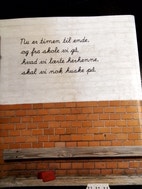 Nu er timen til ende,
og fra skole vi gå,
hvad vi lærte herhenne,
skal vi nok huske på.